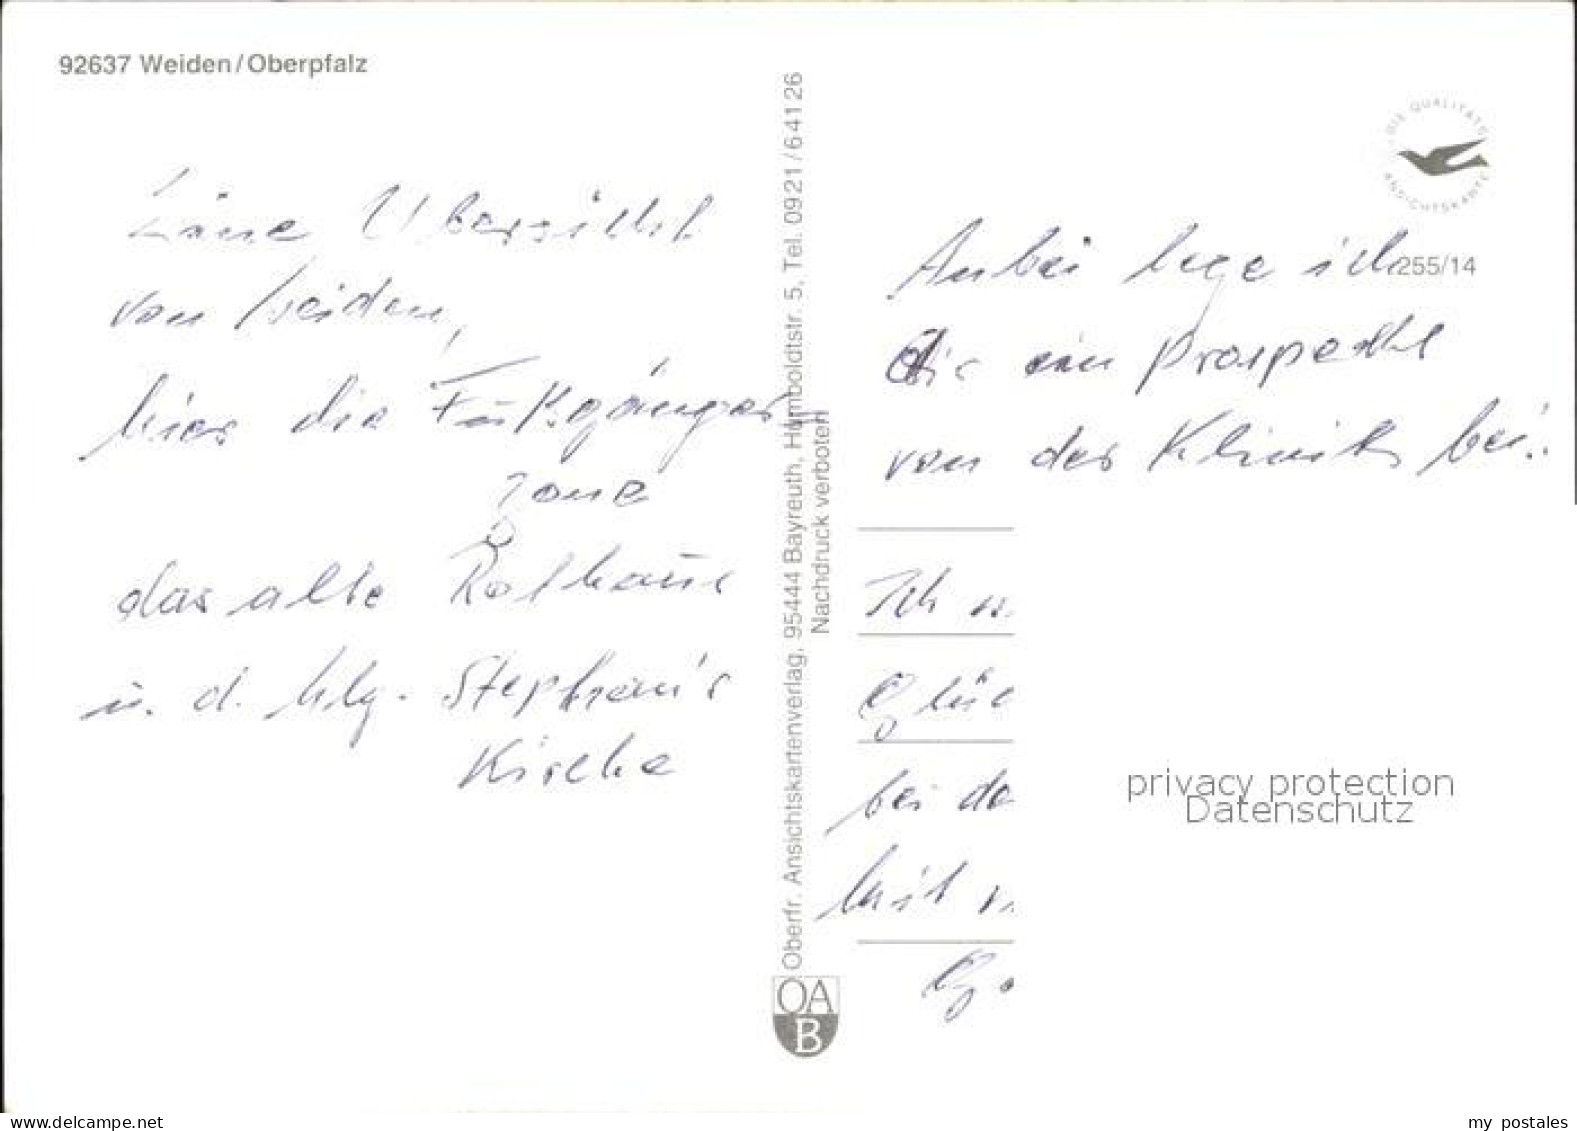 92637 Weiden/Oberpfalz
Eine Übersicht
von Weiden,
hier die Fußgänger-
zone
das alte Rathaus
u. d. hlg. Stephan's
Kirche
Oberfr. Ansichtskartenverlag, 95444 Bayreuth, Humboldtstr. 5, Tel. 0921/64126
Nachdruck verboten
OAB
DIE QUALITÄTS
ANSICHTSKARTE
255/14
Anbei lege ich
dir ein Prospeckt
von der Klinik bei.
Ich
Glüc
bei da
Mit v
privacy protection
Datenschutz
www.delcampe.net
my_postales